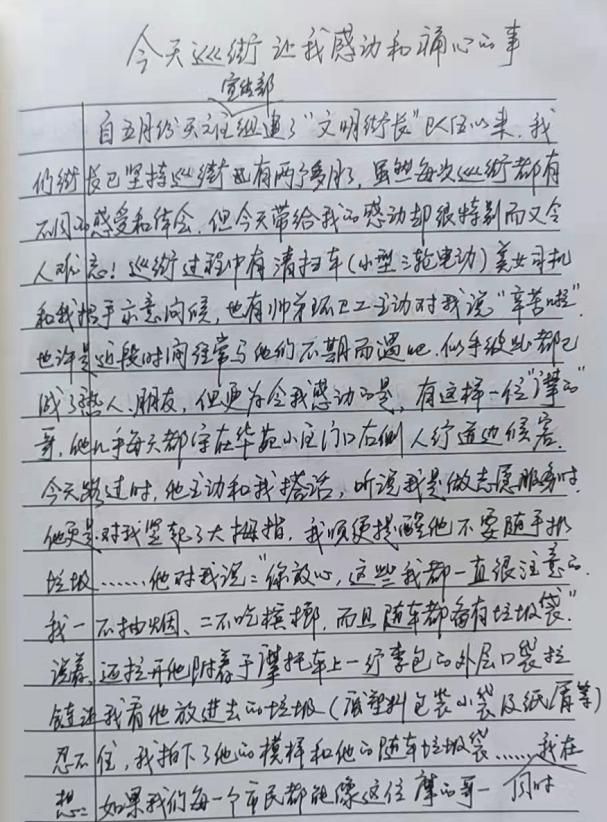 今天巡街让我感动和痛心的事
宣传部
自五月份天元组建了"文明街长"队伍以来，我
们街长已坚持巡街也有两个多月了，虽然每次巡街都有
不同的感受和体会，但今天带给我的感动却很特别而又令
人难忘！巡街过程中有清扫车（小型三轮电动）美女司机
和我招手示意问候，也有帅弟环卫工主动对我说"辛苦啦"
也许是近段时间经常与他们不期而遇吧，似乎彼此都已
成了熟人、朋友，但更为令我感动的是，有这样一位"摩的"
哥，他几乎每天都守在华苑小区门口右侧人行道边候客，
今天路过时，他主动和我搭话，听说我是做志愿服务时，
他更是对我竖起了大拇指，我顺便提醒他不要随手扔
垃圾……他对我说："你放心，这些我都一直很注意的，
我一不抽烟、二不吃槟榔，而且随车都备有垃圾袋"
说着，还拉开他附着于摩托车上一行李包的外层口袋拉
链让我看他放进去的垃圾（废塑料包装小袋及纸屑等）
忍不住，我拍下了他的模样和他的随车垃圾袋……我在
想：如果我们每一个市民都能像这位摩的哥一 同时